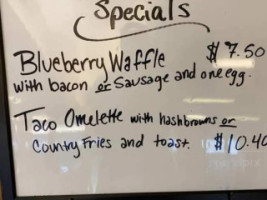 Specials
Blueberry Waffle $7.50
with bacon or Sausage and one egg.
Taco Omelette with hashbrowns or
Country Fries and toast. $10.40